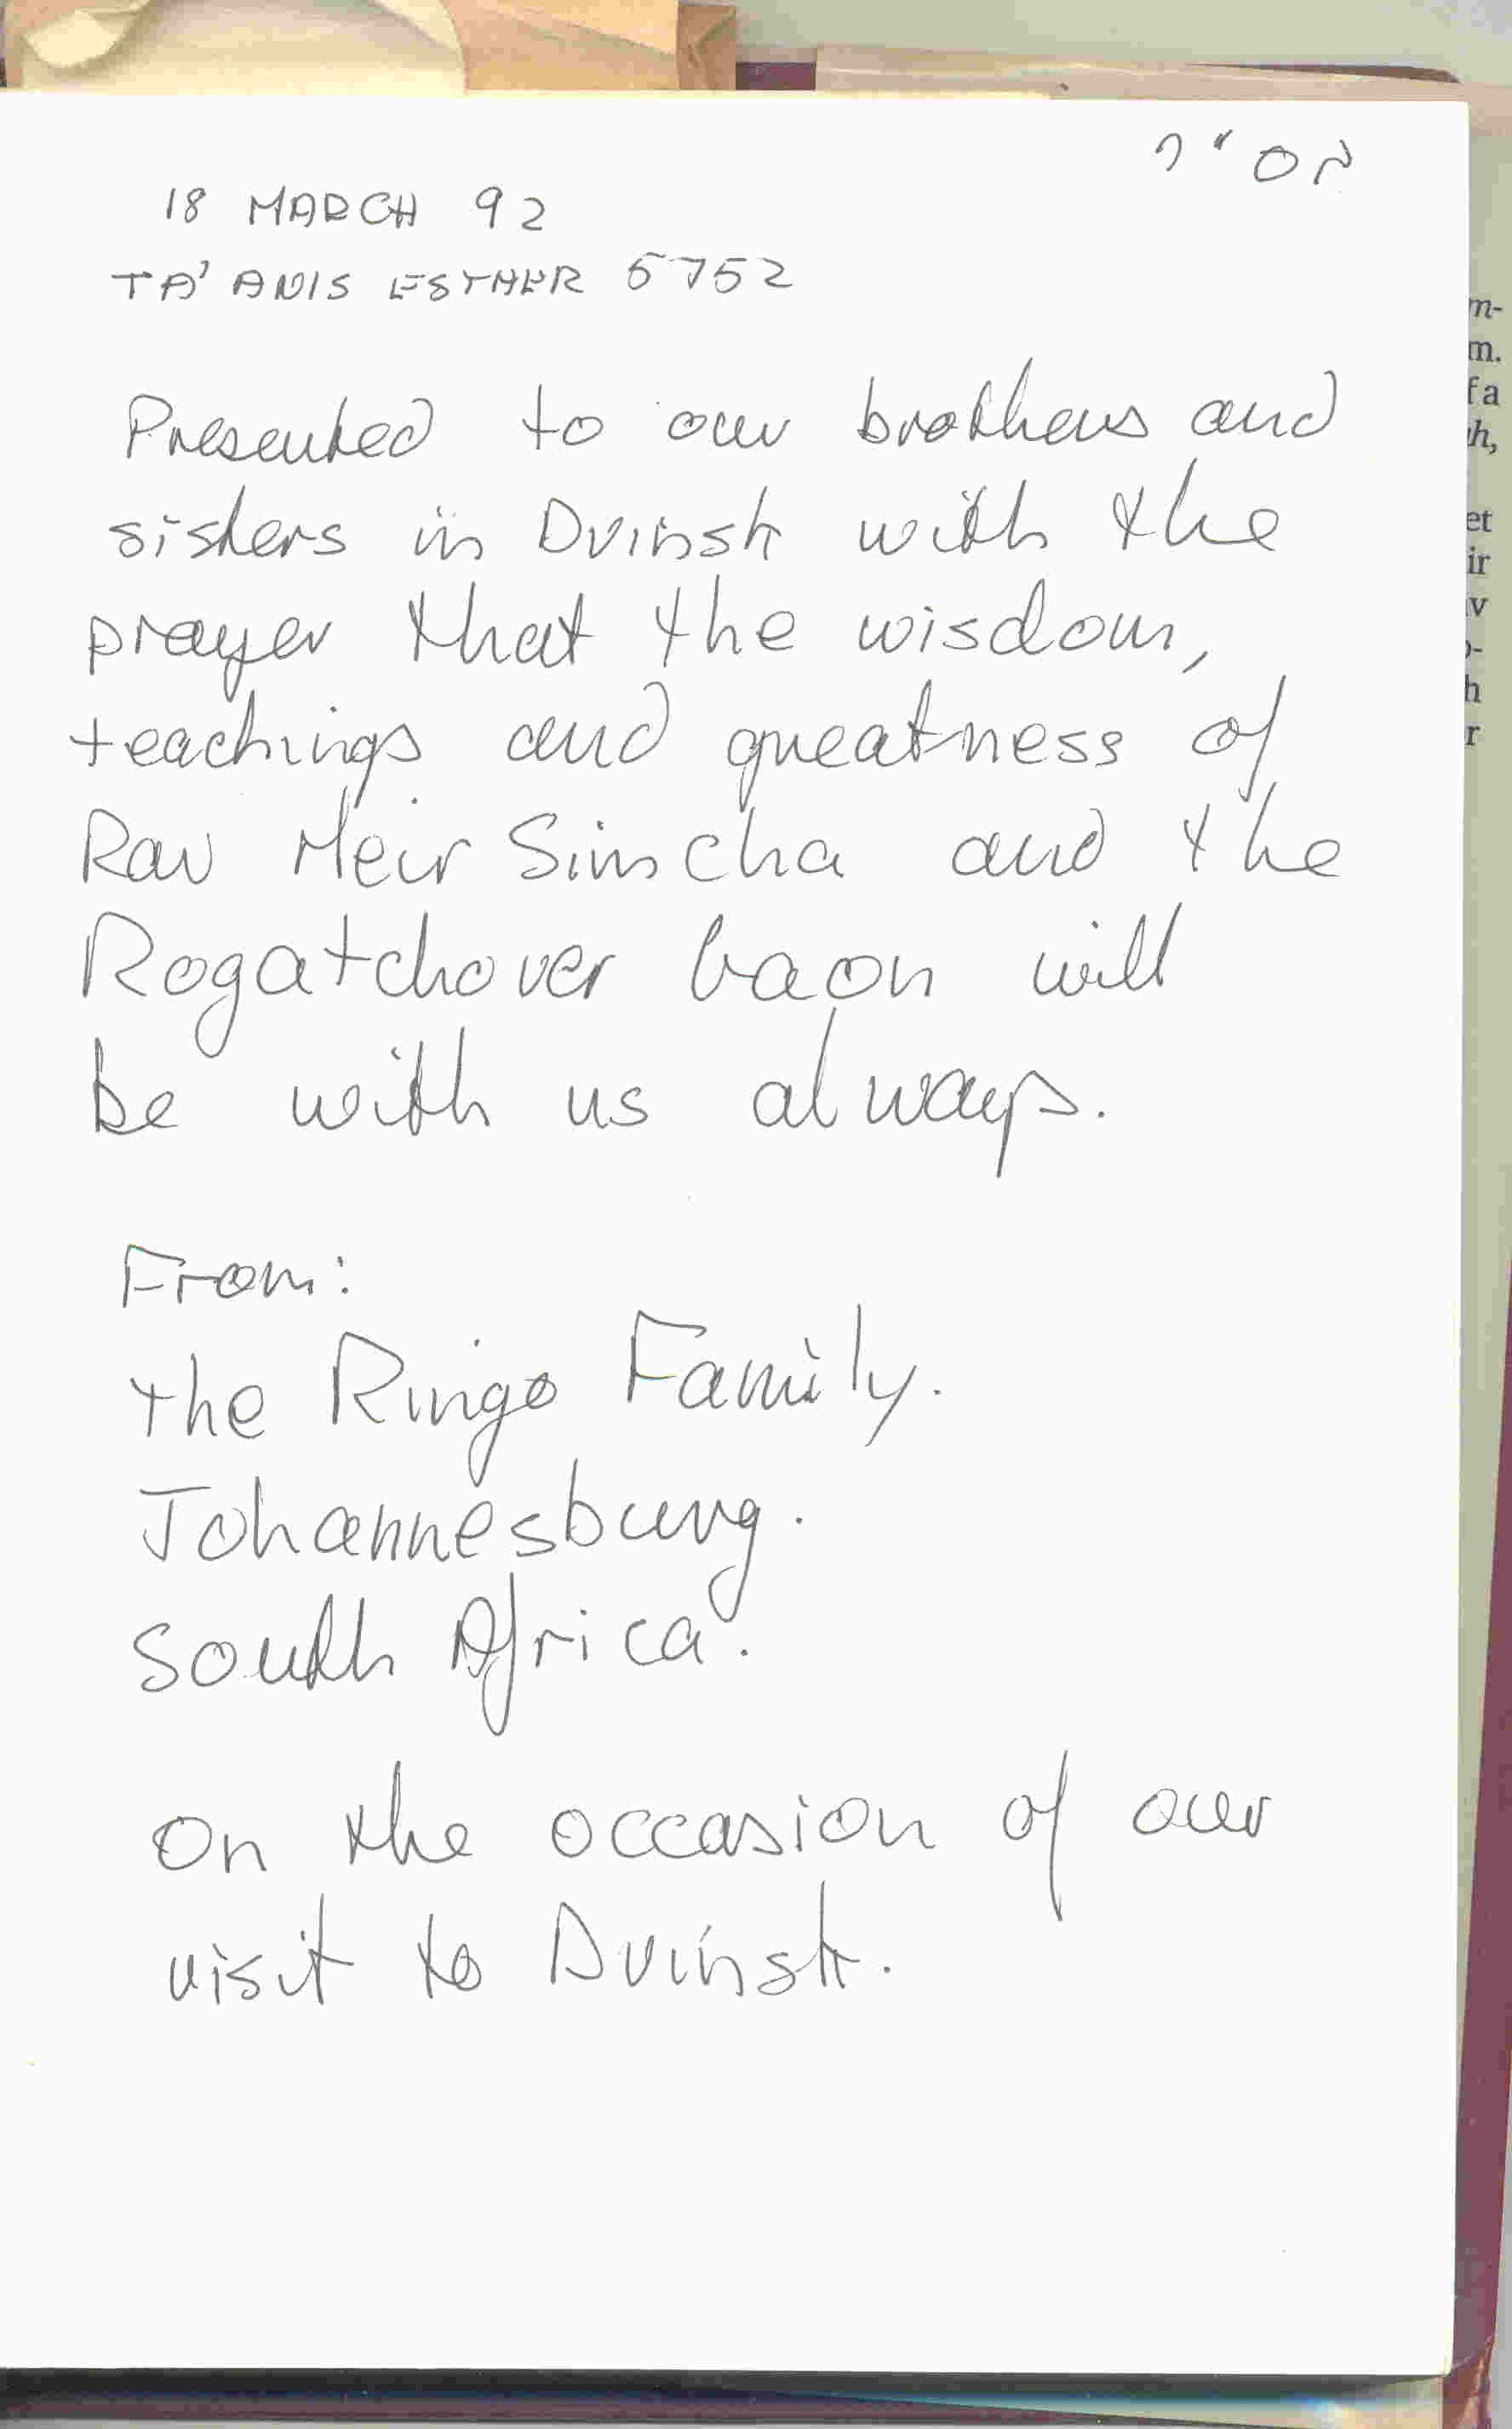 בס"ד
18 MARCH 92
TA'ANIS ESTHER 5752
Presented to our brothers and
sisters in Dvinsk with the
prayer that the wisdom,
teachings and greatness of
Rav Meir Simcha and the
Rogatchover Gaon will
be with us always.
From:
the Ringo Family.
Johannesburg.
South Africa.
On the occasion of our
visit to Dvinsk.
m-
m.
f a
h,
et
ir
v
-
h
r